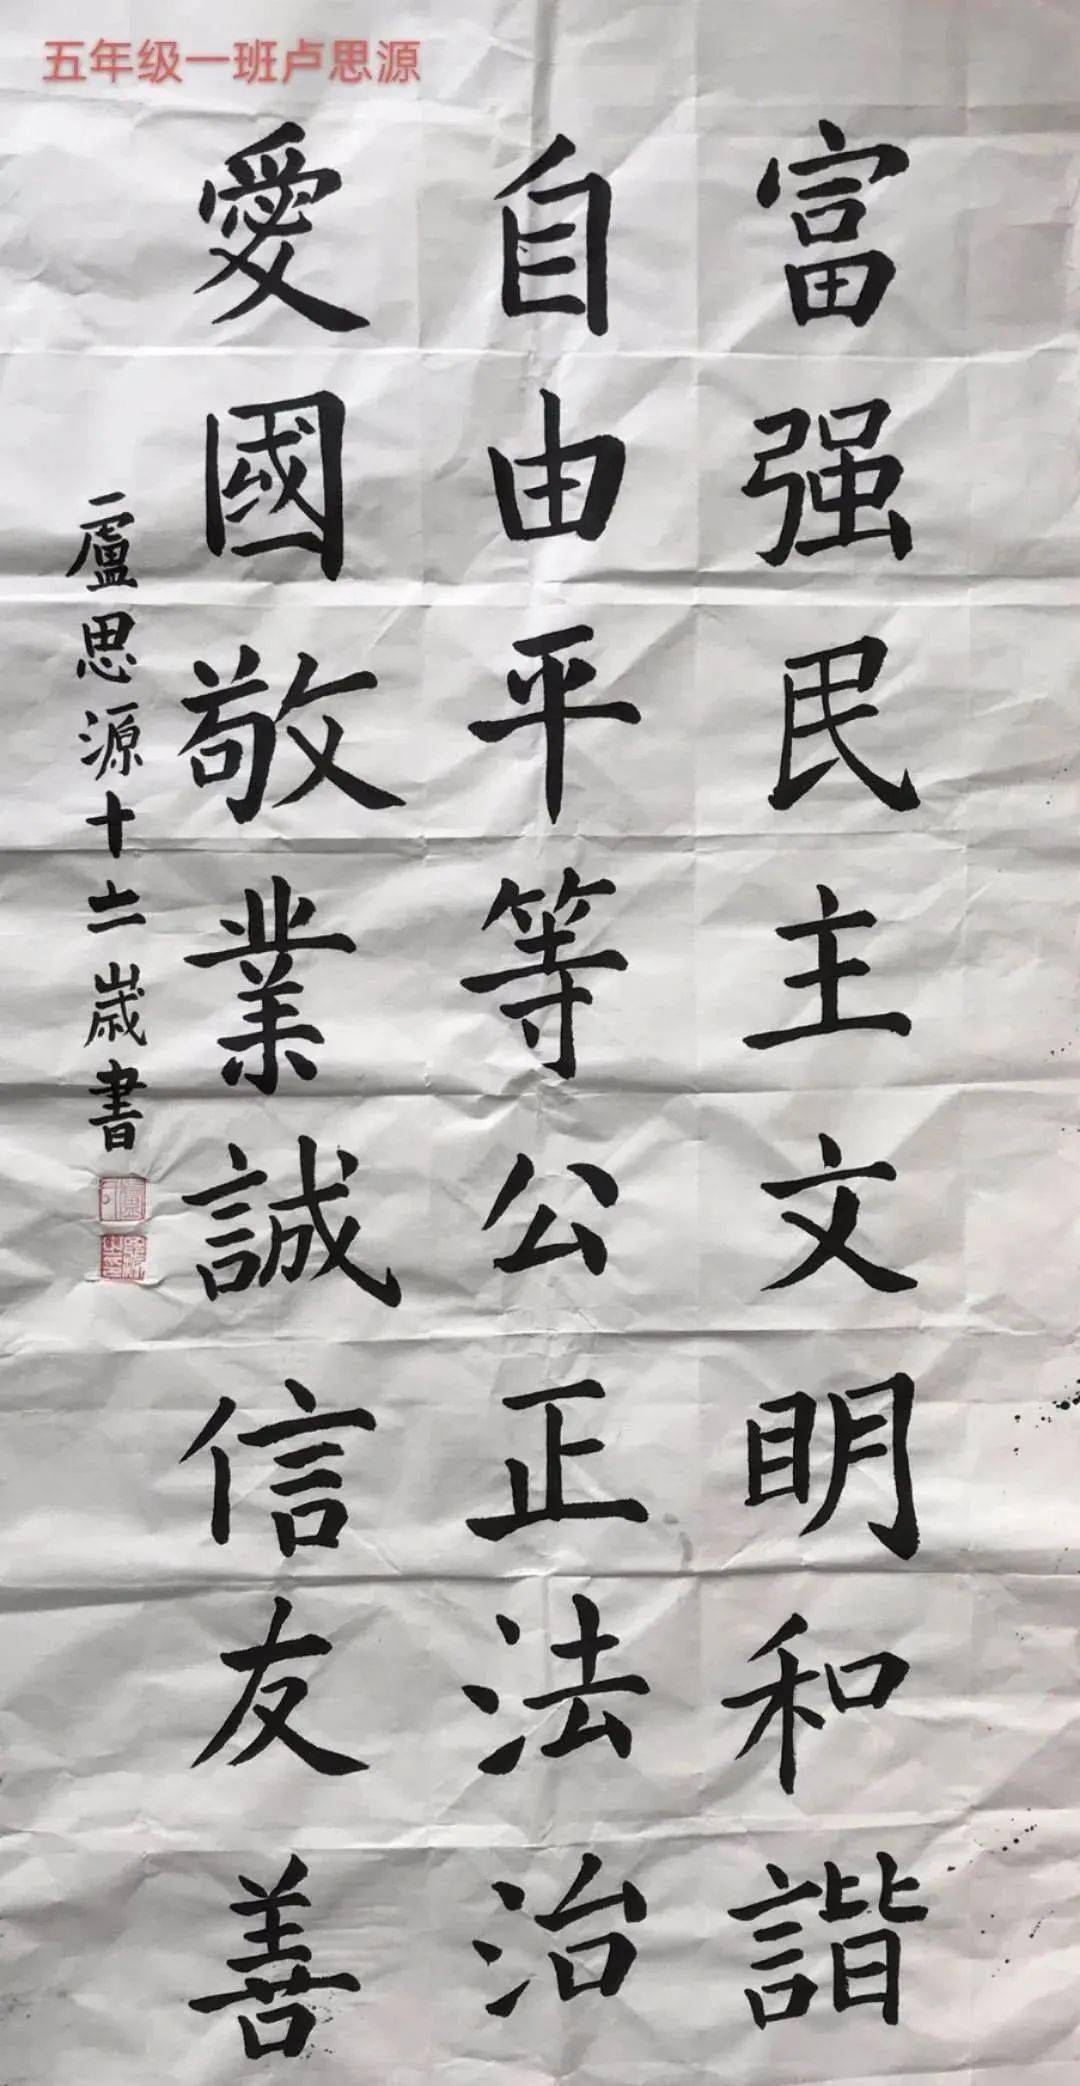 五年级一班卢思源
富强民主文明和諧
自由平等公正法治
愛國敬業誠信友善
盧思源十二歲書